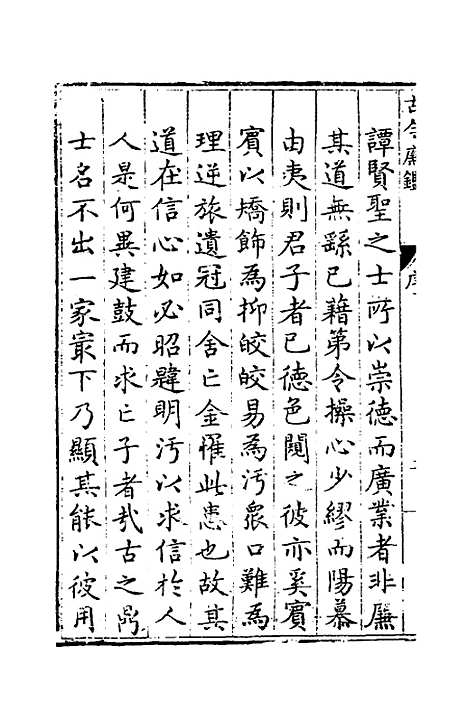 古今廉鑑
序
譚賢聖之士所以崇德而廣業者非廉
其道無繇已藉第令操心少繆而陽慕
由夷則君子者已德色闚之彼亦奚賓
賓以矯飾為抑皎皎易為汚衆口難為
理逆旅遺冠同舍亡金罹此恚也故其
道在信心如必昭韙明汚以求信於人
人是何異建鼓而求亡子者哉古之
士名不出一家最下乃顯其能以彼用